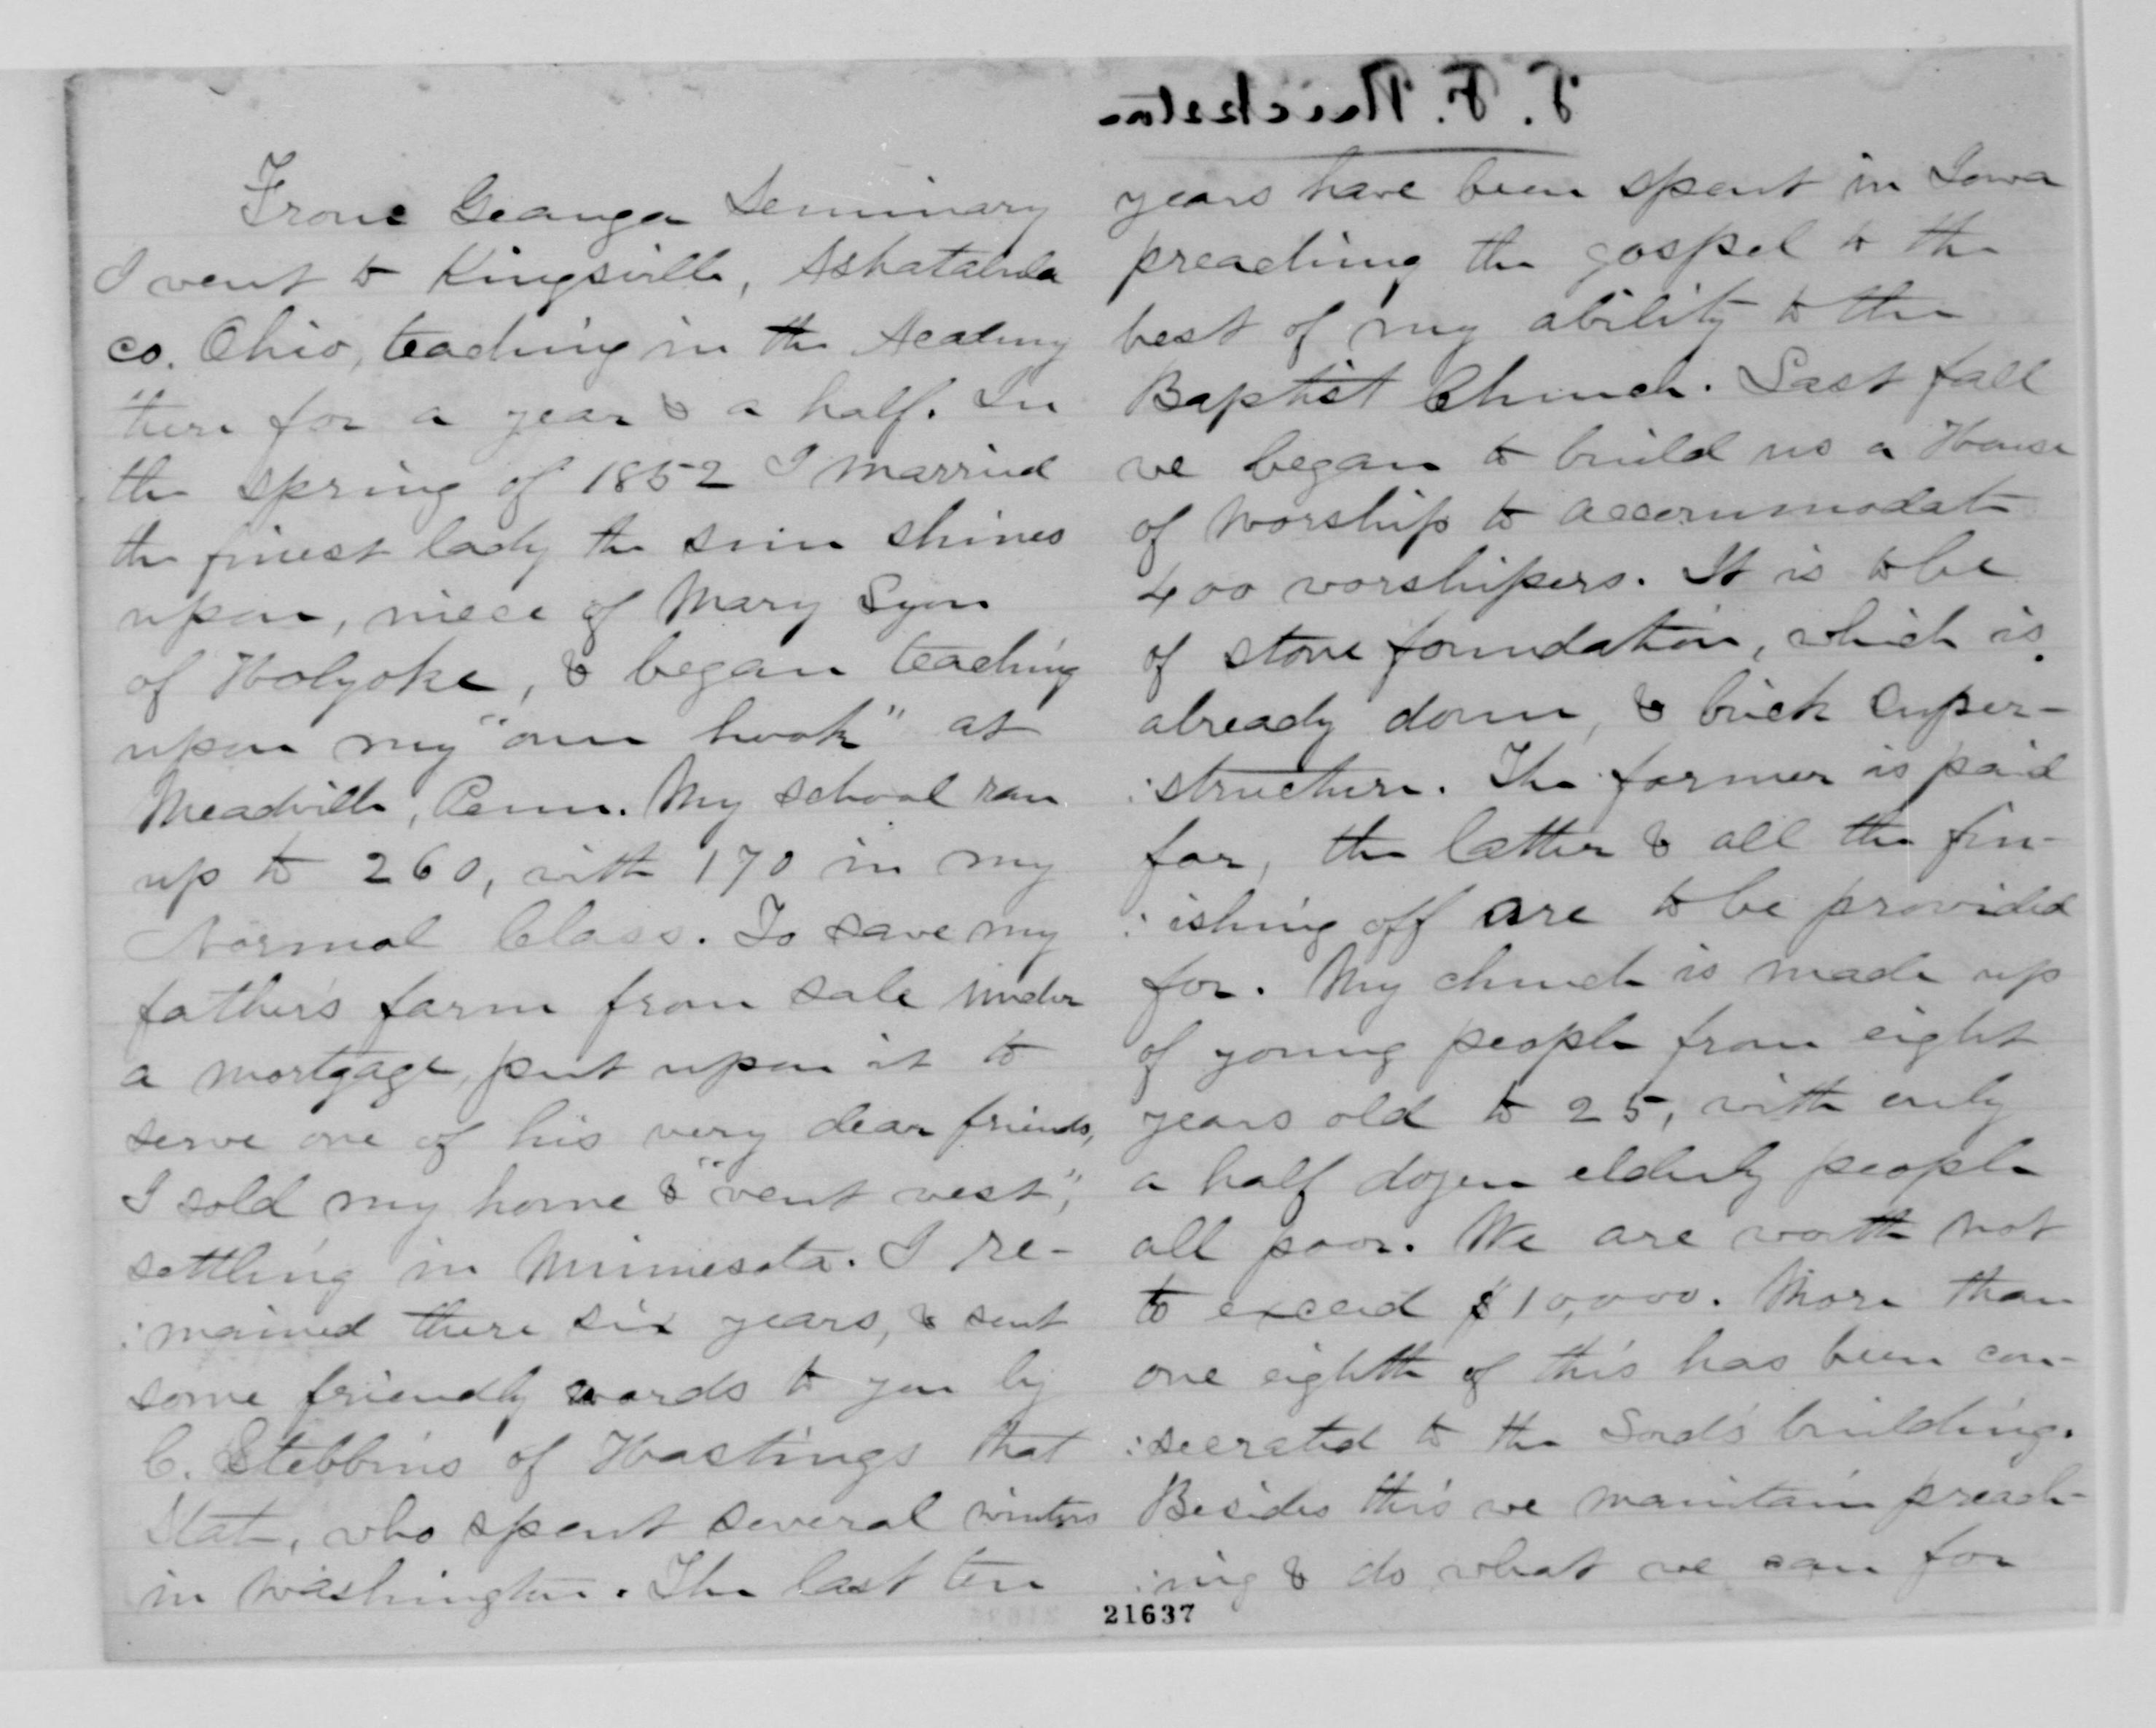 From Geauga Seminary
I went to Kingsville, Ashatabula
co. Ohio, teaching in the Academy
there for a year & a half. In
the spring of 1852 I married
the finest lady the sun shines
upon, niece of Mary Lyon
of Holyoke, & began teaching
upon my "own hook" at
Meadville, Penn. My school ran
up to 260, with 170 in my
Normal Class. To save my
father's farm from sale under
a mortgage, put upon it to
serve one of his very dear friends,
I sold my home & "went west",
settling in Minnesota. I re-
:mained there six years, & sent
some friendly words to you by
C. Stebbins of Hastings that
State, who spent several winters
in Washington. The last ten
T. F.
years have been spent in Iowa
preaching the gospel to the
best of my ability to the
Baptist Church. Last fall
we began to build us a House
of Worship to accommodate
400 worshipers. It is to be
of stone foundation, which is
already down, & brick super-
:structure. The former is paid
for, the latter & all the fin-
:ishing off are to be provided
for. My church is made up
of young people from eight
years old to 25, with only
a half dozen elderly people
all poor. We are worth not
to exceed $10,000. More than
one eighth of this has been con-
:secrated to the Lord's building.
Besides this we maintain preach-
:ing & do what we can for
21637